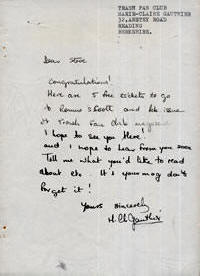 TRASH FAN CLUB
MARIE-CLAIRE GAUTHIER
32, ANSTEY ROAD
READING
BERKSHIRE.
Dear Steve
Congratulations!
Here are 5 free tickets to go
to Ronnie Scott and feb issue
of Trash Fan club magazine
I hope to see you there!
and I hope to hear from you soon
Tell me what you'd like to read
about etc. It's your mag don't
forget it!
Yours sincerely
M. Cl. Gauthier